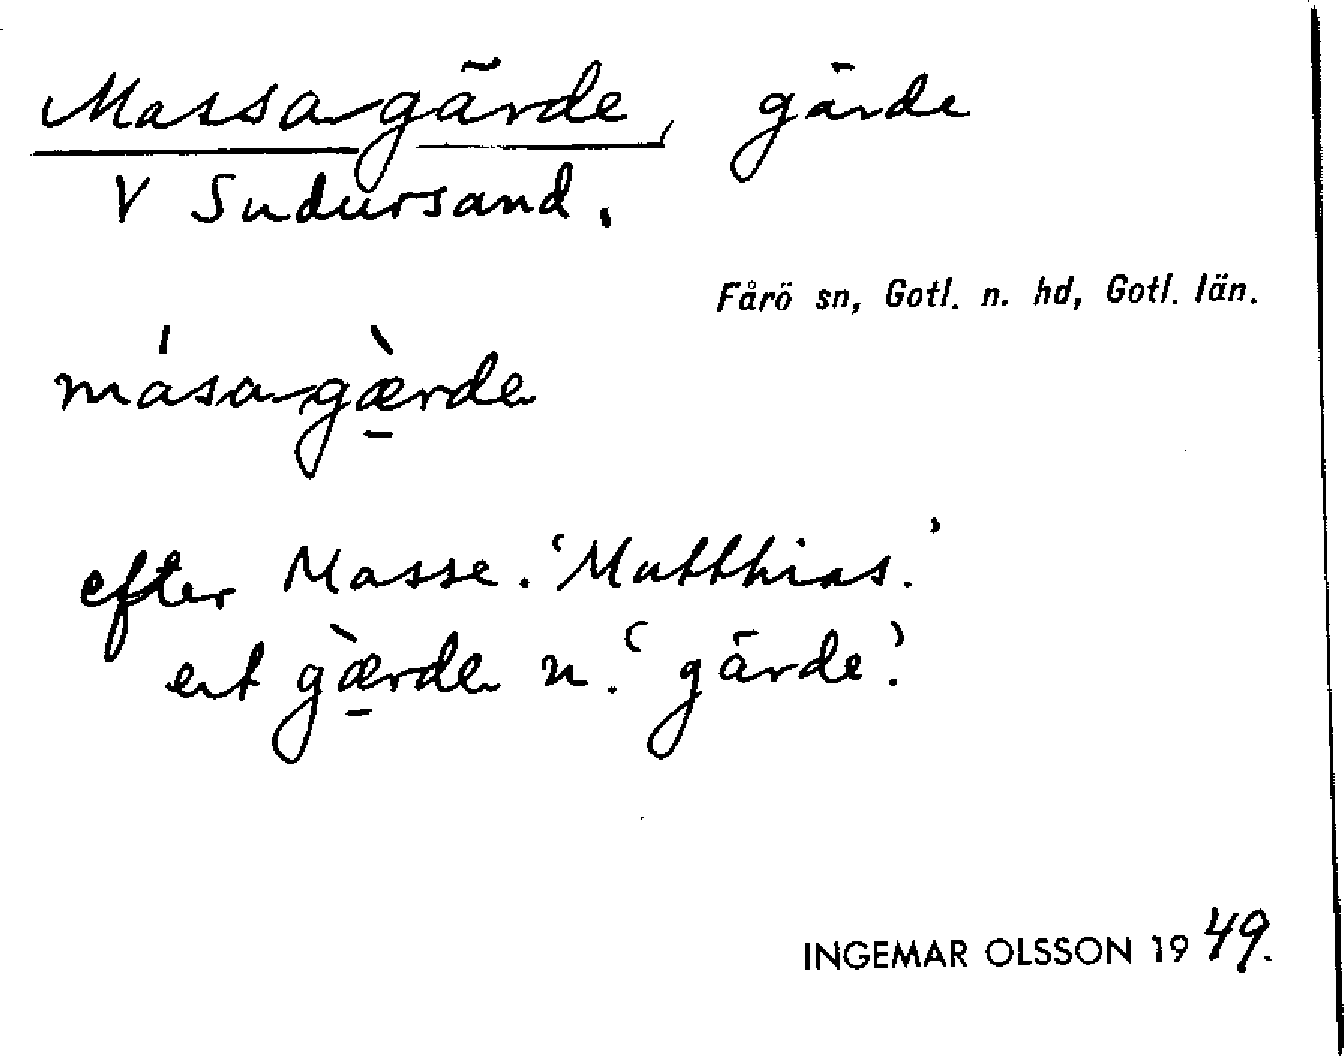 Massagärde, gärde
V Sudursand.
Fårö sn, Gotl. n. hd, Gotl. län.
másagæ̱̀rde
efter Masse. ‘Matthias.’
ert gæ̱̀rde n. ‘gärde’.
INGEMAR OLSSON 1949.